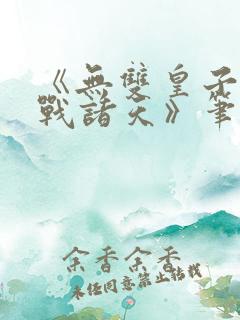 《無雙皇子
戰諸天》筆
余香余香
未经同意禁止转载